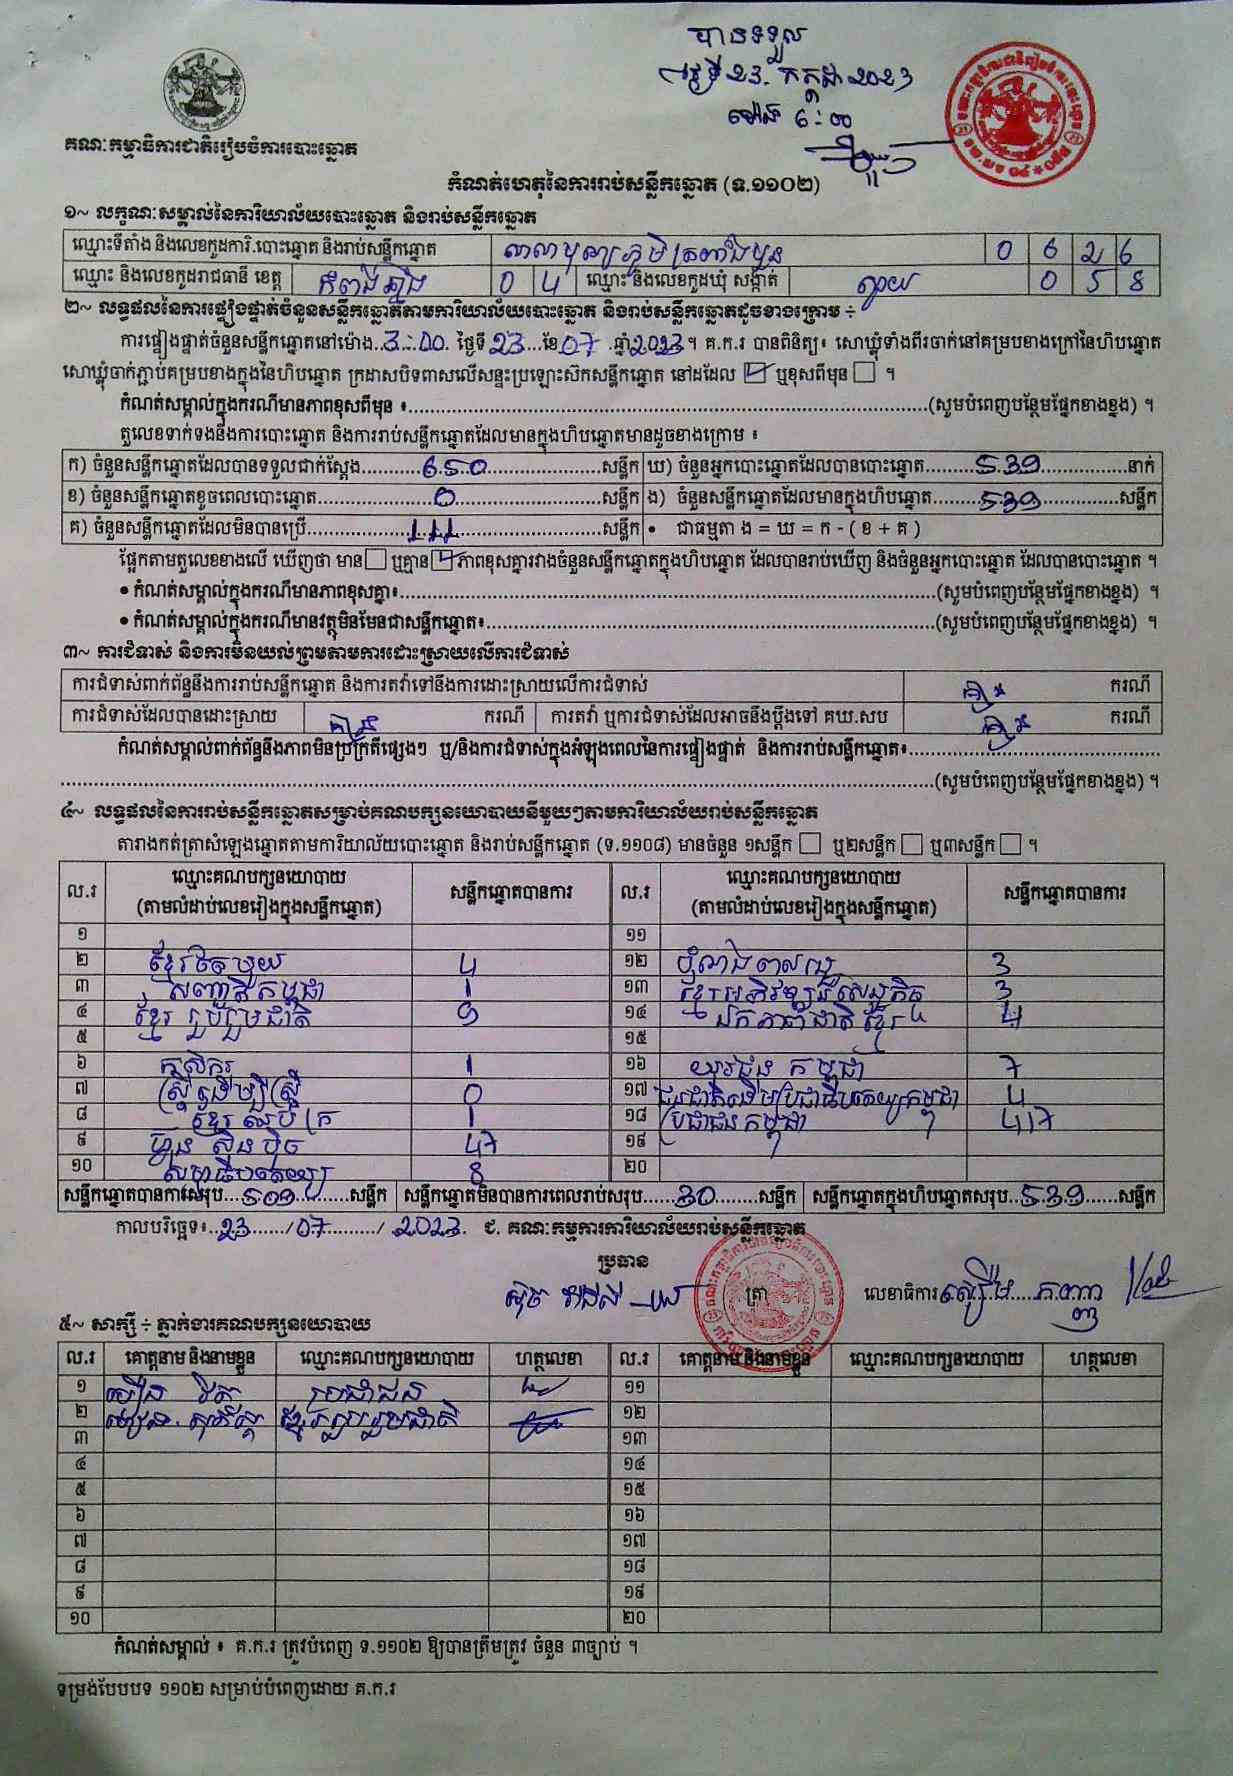 បានទទួល
ថ្ងៃទី 23. កក្កដា 2023
ម៉ោង 6:00
គណៈកម្មាធិការជាតិរៀបចំការបោះឆ្នោត
កំណត់ហេតុនៃការរាប់សន្លឹកឆ្នោត (ទ.១១០២)
១~ លក្ខណៈសម្គាល់នៃការិយាល័យបោះឆ្នោត និងរាប់សន្លឹកឆ្នោត
ឈ្មោះទីតាំង និងលេខកូដការិ.បោះឆ្នោត និងរាប់សន្លឹកឆ្នោត សាលាបុណ្យភូមិត្រពាំងបួន 0 6 2 6
ឈ្មោះ និងលេខកូដរាជធានី ខេត្ត កំពង់ឆ្នាំង 0 4 ឈ្មោះ និងលេខកូដឃុំ សង្កាត់ ស្វាយ 0 5 8
២~ លទ្ធផលនៃការផ្ទៀងផ្ទាត់ចំនួនសន្លឹកឆ្នោតតាមការិយាល័យបោះឆ្នោត និងរាប់សន្លឹកឆ្នោតដូចខាងក្រោម ÷
ការផ្ទៀងផ្ទាត់ចំនួនសន្លឹកឆ្នោតនៅម៉ោង..3:00. ថ្ងៃទី 23 ...ខែ 07 .ឆ្នាំ 2023 ។ គ.ក.រ បានពិនិត្យ៖ សោឃ្លុំទាំងពីរចាក់នៅគម្របខាងក្រៅនៃហិបឆ្នោត
សោឃ្លុំចាក់ភ្ជាប់គម្របខាងក្នុងនៃហិបឆ្នោត ក្រដាសបិទពាសលើសន្ទះប្រឡោះស៊កសន្លឹកឆ្នោត នៅដដែល ☑ ឬខុសពីមុន ☐ ។
កំណត់សម្គាល់ក្នុងករណីមានភាពខុសពីមុន ៖.....(សូមបំពេញបន្ថែមផ្នែកខាងខ្នង) ។
តួលេខទាក់ទងនឹងការបោះឆ្នោត និងការរាប់សន្លឹកឆ្នោតដែលមានក្នុងហិបឆ្នោតមានដូចខាងក្រោម ៖
ក) ចំនួនសន្លឹកឆ្នោតដែលបានទទួលជាក់ស្តែង.....650.....សន្លឹក ឃ) ចំនួនអ្នកបោះឆ្នោតដែលបានបោះឆ្នោត.....539.....នាក់
ខ) ចំនួនសន្លឹកឆ្នោតខូចពេលបោះឆ្នោត.....0.....សន្លឹក ង) ចំនួនសន្លឹកឆ្នោតដែលមានក្នុងហិបឆ្នោត.....539.....សន្លឹក
គ) ចំនួនសន្លឹកឆ្នោតដែលមិនបានប្រើ.....111.....សន្លឹក • ជាធម្មតា ង = ឃ = ក - ( ខ + គ )
ផ្អែកតាមតួលេខខាងលើ ឃើញថា មាន ☐ ឬគ្មាន ☑ ភាពខុសគ្នារវាងចំនួនសន្លឹកឆ្នោតក្នុងហិបឆ្នោត ដែលបានរាប់ឃើញ និងចំនួនអ្នកបោះឆ្នោត ដែលបានបោះឆ្នោត ។
• កំណត់សម្គាល់ក្នុងករណីមានភាពខុសគ្នា៖.....(សូមបំពេញបន្ថែមផ្នែកខាងខ្នង) ។
• កំណត់សម្គាល់ក្នុងករណីមានវត្ថុមិនមែនជាសន្លឹកឆ្នោត៖.....(សូមបំពេញបន្ថែមផ្នែកខាងខ្នង) ។
៣~ ការជំទាស់ និងការមិនយល់ព្រមតាមការដោះស្រាយលើការជំទាស់
ការជំទាស់ពាក់ព័ន្ធនឹងការរាប់សន្លឹកឆ្នោត និងការតវ៉ាទៅនឹងការដោះស្រាយលើការជំទាស់ គ្មាន ករណី
ការជំទាស់ដែលបានដោះស្រាយ គ្មាន ករណី ការតវ៉ា ឬការជំទាស់ដែលអាចនឹងប្តឹងទៅ គឃ.សប គ្មាន ករណី
កំណត់សម្គាល់ពាក់ព័ន្ធនឹងភាពមិនប្រក្រតីផ្សេងៗ ឬ/និងការជំទាស់ក្នុងអំឡុងពេលនៃការផ្ទៀងផ្ទាត់ និងការរាប់សន្លឹកឆ្នោត៖.....
.....(សូមបំពេញបន្ថែមផ្នែកខាងខ្នង) ។
៤~ លទ្ធផលនៃការរាប់សន្លឹកឆ្នោតសម្រាប់គណបក្សនយោបាយនីមួយៗតាមការិយាល័យរាប់សន្លឹកឆ្នោត
តារាងកត់ត្រាសំឡេងឆ្នោតតាមការិយាល័យបោះឆ្នោត និងរាប់សន្លឹកឆ្នោត (ទ.១១០៨) មានចំនួន ១សន្លឹក ☐ ឬ២សន្លឹក ☐ ឬ៣សន្លឹក ☐ ។
ល.រ ឈ្មោះគណបក្សនយោបាយ (តាមលំដាប់លេខរៀងក្នុងសន្លឹកឆ្នោត) សន្លឹកឆ្នោតបានការ ល.រ ឈ្មោះគណបក្សនយោបាយ (តាមលំដាប់លេខរៀងក្នុងសន្លឹកឆ្នោត) សន្លឹកឆ្នោតបានការ
១ ១១
២ ខ្មែរតែមួយ 4 ១២ ឃ្មុំ 3
៣ សញ្ជាតិកម្ពុជា 1 ១៣ ខ្មែរអភិវឌ្ឍន៍សេដ្ឋកិច្ច 3
៤ ខ្មែររួបរួមជាតិ 9 ១៤ ឯកភាពជាតិខ្មែរ 4
៥ ១៥
៦ កសិករ 1 ១៦ យុវជនកម្ពុជា 7
៧ ស្ត្រីដើម្បីស្ត្រី 0 ១៧ ជនជាតិដើមប្រជាធិបតេយ្យកម្ពុជា 4
៨ ខ្មែរឈប់ក្រ 1 ១៨ ប្រជាជនកម្ពុជា 417
៩ ហ៊្វុនស៊ិនប៉ិច 47 ១៩
១០ សមាធិបតេយ្យ 8 ២០
សន្លឹកឆ្នោតបានការសរុប...509.....សន្លឹក សន្លឹកឆ្នោតមិនបានការពេលរាប់សរុប.....30.....សន្លឹក សន្លឹកឆ្នោតក្នុងហិបឆ្នោតសរុប..539.....សន្លឹក
កាលបរិច្ឆេទ៖..23...../07...../ 2023. ជ. គណៈកម្មការការិយាល័យរាប់សន្លឹកឆ្នោត
ប្រធាន
ត្រា លេខាធិការ
៥~ សាក្សី ÷ ភ្នាក់ងារគណបក្សនយោបាយ
ល.រ គោត្តនាម និងនាមខ្លួន ឈ្មោះគណបក្សនយោបាយ ហត្ថលេខា ល.រ គោត្តនាម និងនាមខ្លួន ឈ្មោះគណបក្សនយោបាយ ហត្ថលេខា
១ ប្រជាជន ១១
២ ខ្មែររួបរួមជាតិ ១២
៣ ១៣
៤ ១៤
៥ ១៥
៦ ១៦
៧ ១៧
៨ ១៨
៩ ១៩
១០ ២០
កំណត់សម្គាល់ ៖ គ.ក.រ ត្រូវបំពេញ ទ.១១០២ ឱ្យបានត្រឹមត្រូវ ចំនួន ៣ច្បាប់ ។
ទម្រង់បែបបទ ១១០២ សម្រាប់បំពេញដោយ គ.ក.រ